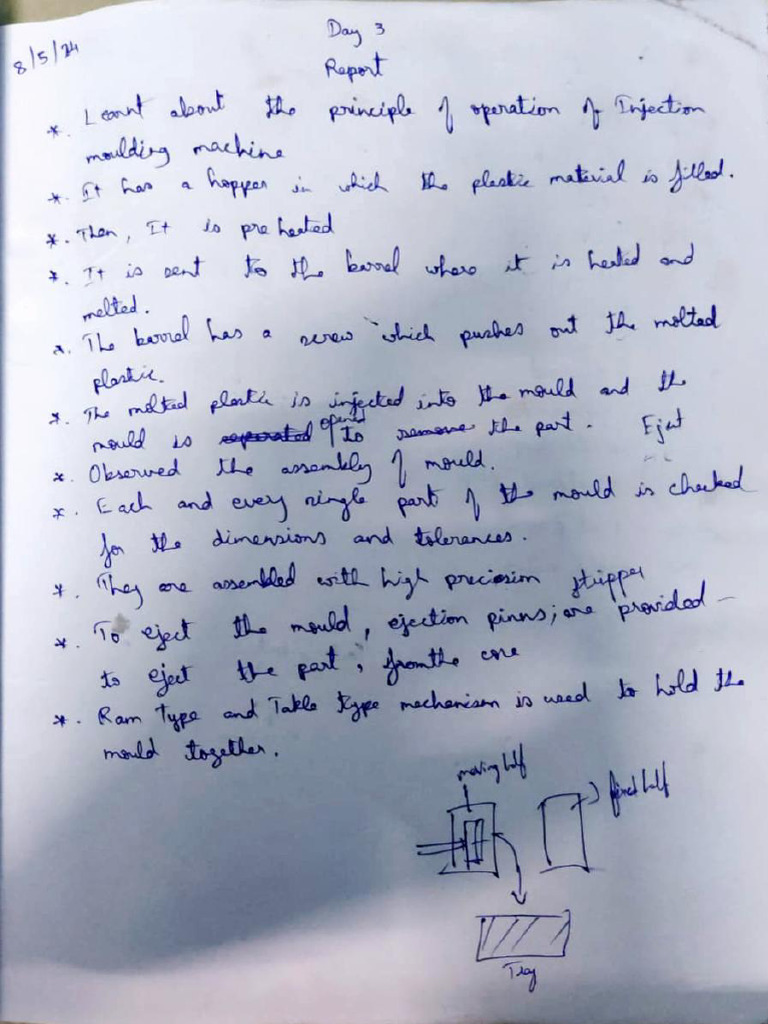 8/5/24
Day 3
Report
*. Learnt about the principle of operation of Injection
moulding machine
*. It has a hopper in which the plastic material is filled.
*. Then, It is pre heated
*. It is sent to the barrel where it is heated and
melted.
*. The barrel has a screw which pushes out the melted
plastic.
*. The melted plastic is injected into the mould and the
mould is separated opened to remove the part. Eject
*. Observed the assembly of mould.
*. Each and every single part of the mould is checked
for the dimensions and tolerances.
*. They are assembled with high precision
stripper
*. To eject the mould, ejection pinns; are provided
to eject the part, from the core
*. Ram Type and type mechanism is used to hold the
mould together.
moving half
fixed half
Tray